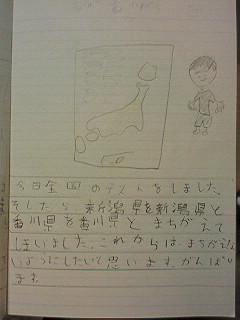 今日全国のテストをしました。
そしたら 新潟県を新潟県と
香川県を番川県と まちがえて
しまいました。これからは まちがえな
いようにしたいと思います。がんばり
ます。